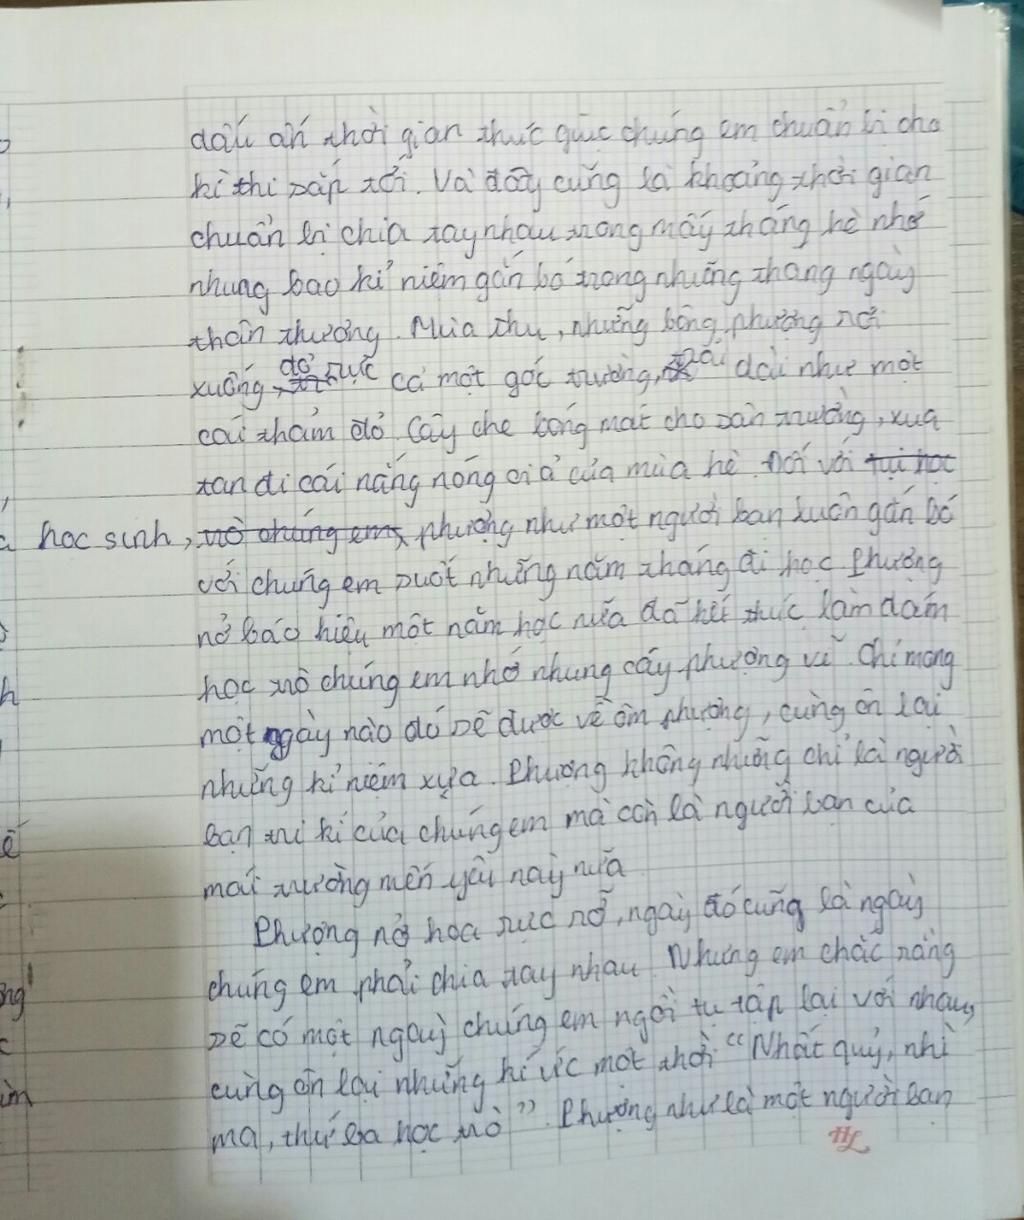 dấu ấn thời gian thúc giục chúng em chuẩn bị cho
kì thi sắp tới. Và đây cũng là khoảng thời gian
chuẩn bị chia tay nhau trong mấy tháng hè nhớ
nhung bao kỉ niệm gắn bó trong những tháng ngày
thân thương. Mùa thu, những bông phượng rơi
xuống, đỏ rực cả một góc trường, trải dài như một
cái thảm đỏ. Cây che bóng mát cho sân trường, xua
tan đi cái nắng nóng oi ả của mùa hè. Đối với tụi học
học sinh, trò chúng em, phượng như một người bạn luôn gắn bó
với chúng em suốt những năm tháng đi học. Phượng
nở báo hiệu một năm học nữa đã kết thúc làm đám
học trò chúng em nhớ nhung cây phượng vĩ. Chỉ mong
một ngày nào đó sẽ được về ôm phượng, cùng ôn lại
những kỉ niệm xưa. Phượng không những chỉ là người
bạn tri kỉ của chúng em mà còn là người bạn của
mái trường mến yêu này nữa
Phượng nở hoa rực rỡ, ngày đó cũng là ngày
chúng em phải chia tay nhau. Nhưng em chắc rằng
sẽ có một ngày chúng em ngồi tụ tập lại với nhau,
cùng ôn lại những kí ức một thời "Nhất quỷ, nhì
ma, thứ ba học trò". Phượng như là một người bạn
HL